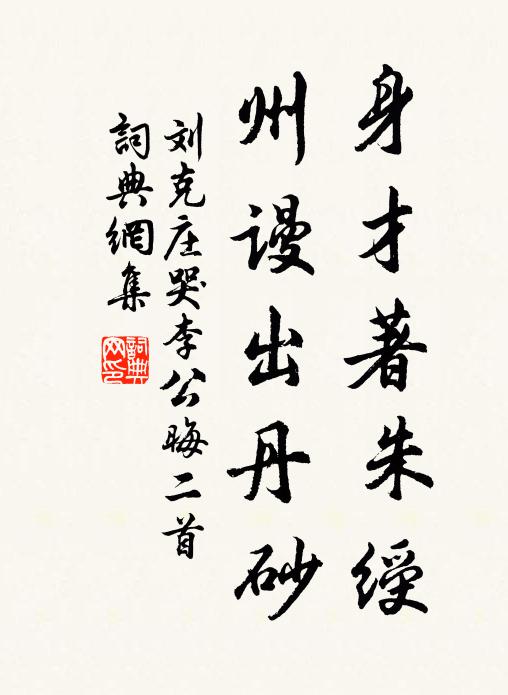 身才著朱绶
州谩出丹砂
刘克庄哭李公晦二首
詞典網集
詞典
网印